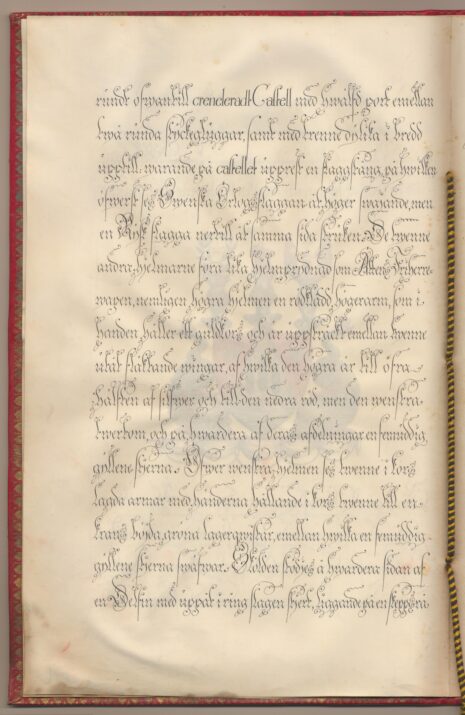 rundt ofwantill creneleradt Castell med hwalfd port emellan
twå runda styckegluggar, samt med trenne dylika i bredd
upptill: warande på castellet upprest en flaggstång, på hwilken
öfwerst ses Swenska Örlogsflaggan åt höger swajande, men
en Rysk flagga nertill åt samma sida struken. De twenne
andra hjelmarne föra lika hjelmprydnad som Ättens Friherre-
wapen, nemligen högra hjelmen en rödklädd högerarm, som i
handen håller ett guldkors och är uppsträckt emellan twenne
utåt flaktande wingar, af hwilka den högra är till öfra
hälften af silfwer och till den nedra röd, men den wenstra
twertom, och på hwardera af deras afdelningar en femuddig
gyllene stjerna. Öfwer wenstra hjelmen ses twenne i kors
lagda armar med händerna hållande i kors twenne till en
krans böjda gröna lagerqwistar, emellan hwilka en femuddig
gyllene stjerna swäfwar. Skölden stödjes å hwardera sidan af
en Delfin med uppåt i ring slagen stjert, liggande på en skeppsrå